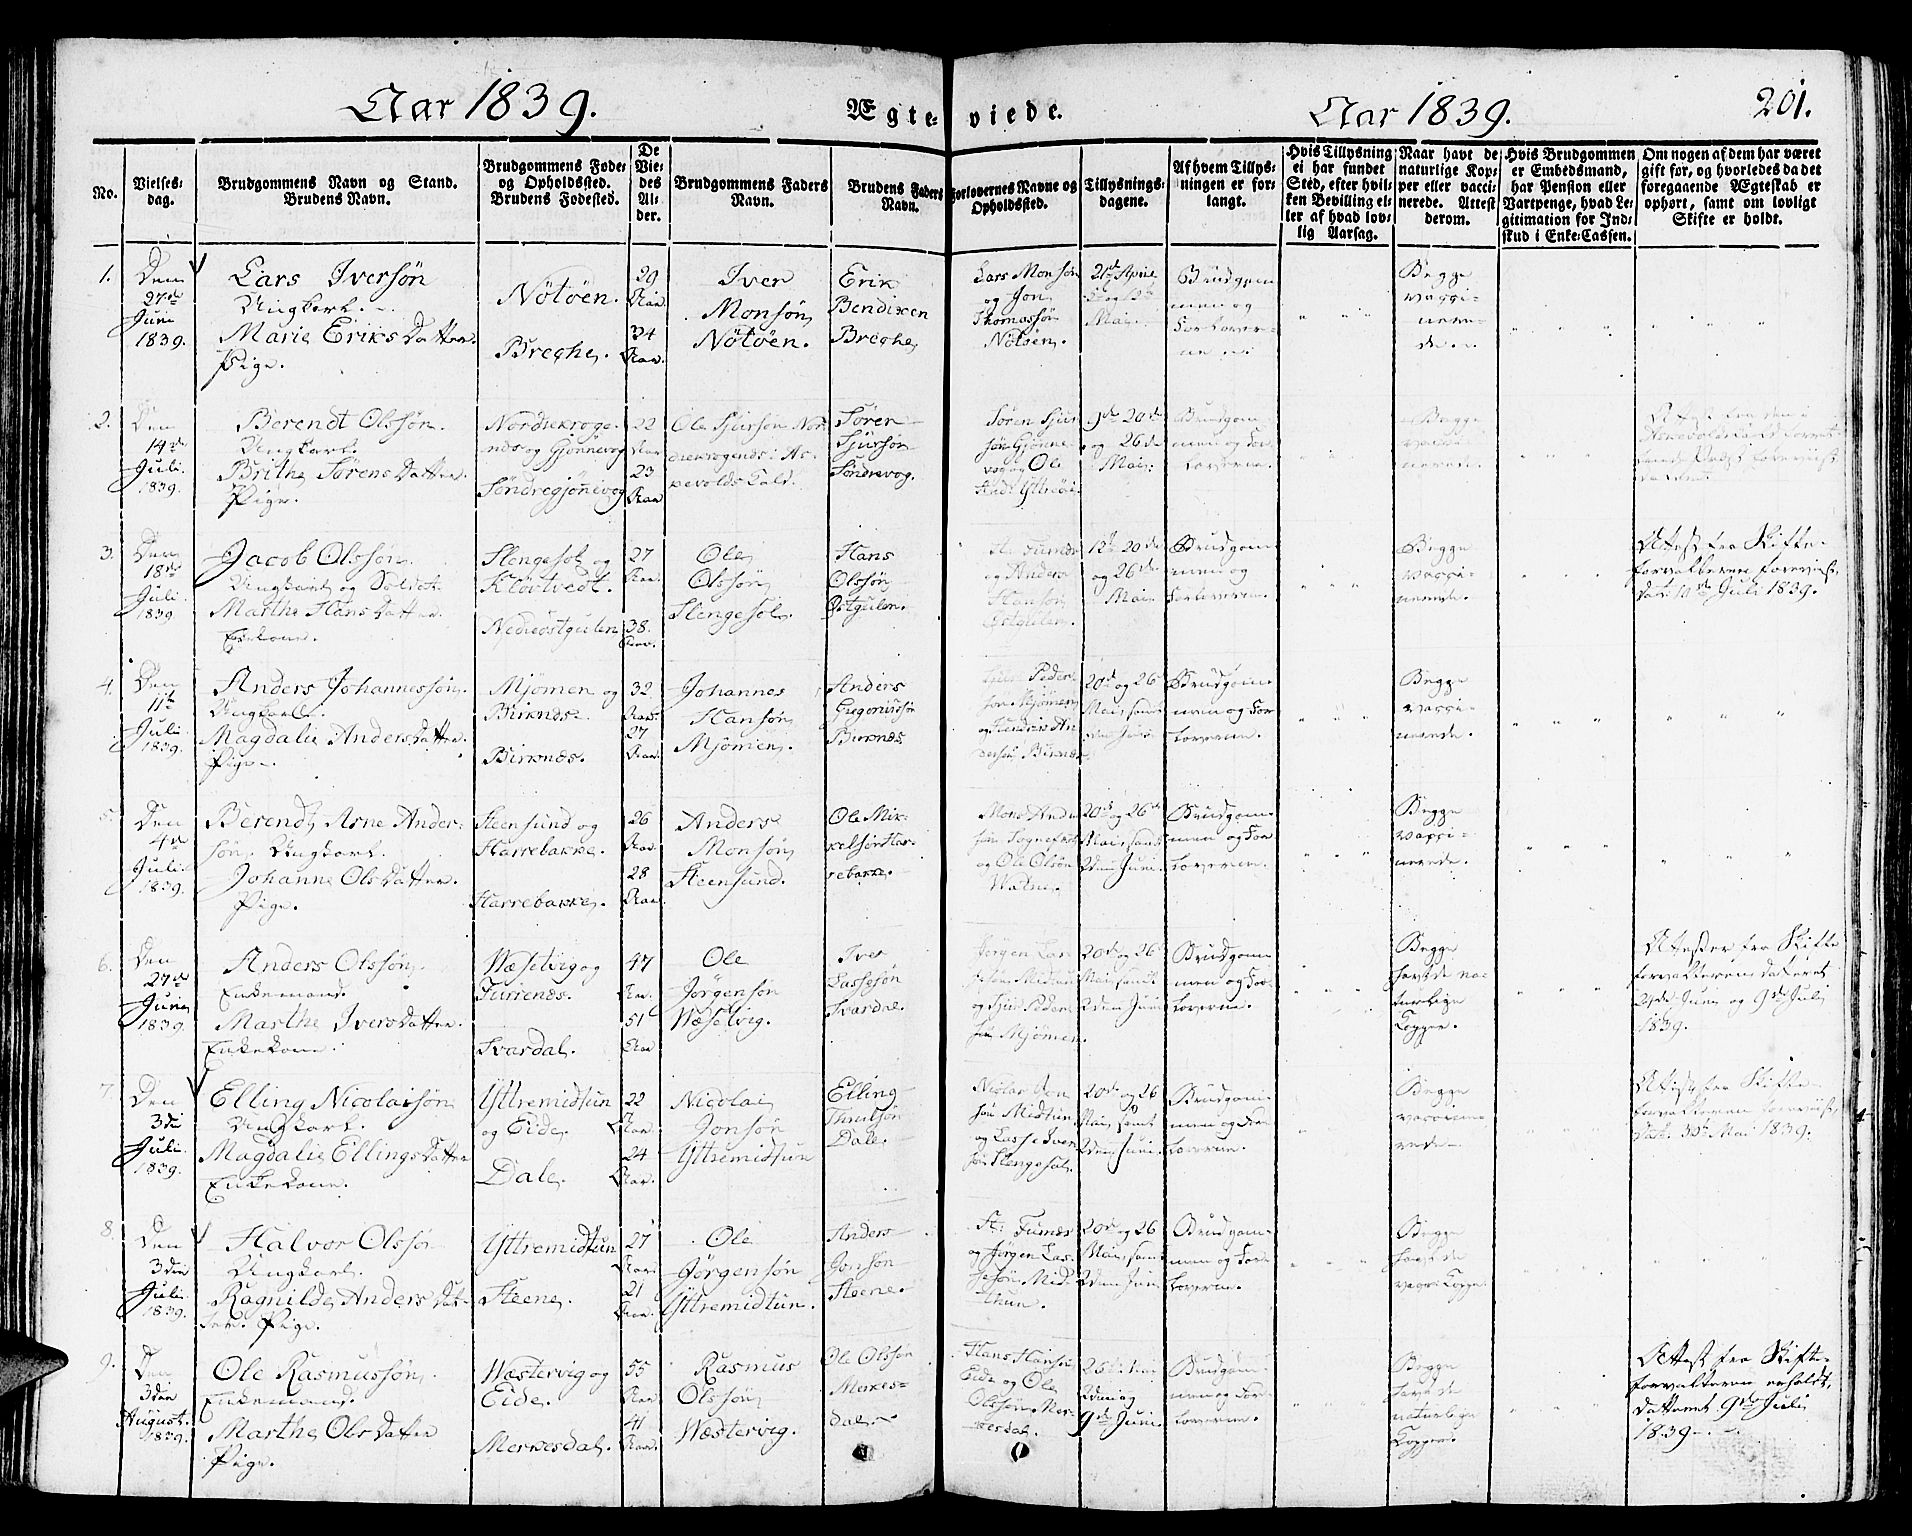 Aar 1839. Ægte-viede. Aar 1839. 201.
No.
Vielses-
dag.
Brudgommens Navn og Stand.
Brudens Navn.
Brudgommens Føde-
og Opholdssted.
Brudens Fødested.
De
Vie-
des
Al-
der.
Brudgommens Faders
Navn.
Brudens Faders
Navn.
Forlovernes Navne og
Opholdssted.
Tillysnings-
dagene.
Af hvem Tillys-
ningen er for-
langt.
Hvis Tillysning
ei har fundet
Sted, efter hvil-
ken Bevilling el-
ler af hvad lov-
lig Aarsag.
Naar havt de
naturlige Kop-
per eller vacci-
nerede. Attest
derom.
Hvis Brudgommen
er Embedsmand,
har Pension eller
Vartpenge, hvad Le-
gitimation for Ind-
skud i Enke-Cassen.
Om nogen af dem har været
gift før, og hvorledes da det
foregaaende Ægteskab er
ophørt, samt om lovligt
Skifte er holdt.
1.
Den
27de
Juni
1839.
Lars Iversøn
Ungkarl.
Marie Eriks Datter
Pige.
Nötöen.
Breghe.
29
Aar
34
Aar.
Iver
Monsøn
Nötöen.
Erik
Bendixen
Breghe
Lars Monsøn
og Jon
Thomassøn
Nötöen.
21de April
Mai.
Brudgom-
men og
Forlover-
ne
Begge
vacci-
nere-
de.
2.
Den
14de
Juli
1839.
Berendt Olssøn
Ungkarl.
Brithe Sörens Datter
Pige.
Nordrekroge-
næs og Gjönnevog
Söndregjönnevog
22
Aar
23
Aar
Ole Sjursøn Nor-
drekrogenæs i As-
kevolds Kald.
Sören
Sjursøn
Söndrevog.
Sören Sjur-
søn Gjönne-
vog og Ole
And: Yttröe
20de
og 26de
Mai.
Brudgom-
men og For-
loverne.
Begge
vacci-
nerede.
3.
Den
18de
Juli
1839
Jacob Olssøn
Ungkarl og Soldat
Marthe Hans Datter
Enkekone.
Slengesol og
Klövtvedt.
Nedreöstgulen
27
Aar.
38.
Aar.
Ole
Olssøn
Slengesol.
Hans
Olssøn
Östgulen.
og Anders
Hansøn
Östgulen
20de
og 26de
Mai.
Brudgom-
men og
Forloverne.
Begge
vacci-
nerede.
Attest fra Skifte-
forvalteren foreviist,
dat: 10de Juli 1839.
4.
Den
11te
Juli
1839.
Anders Johannessøn
Ungkarl.
Magdalie Anders Datter
Pige.
Mjömen og
Birknæs.
Birknæs.
32
Aar.
27
Aar.
Johannes
Hansøn
Mjömen.
Anders
Gregoriussøn
Birknæs
Peder-
søn Mjömen
og Hendrik An-
dersøn Birknæs
20de og 26
Mai, samt
2den Juni
Brudgom-
men og For-
loverne.
Begge
vacci-
nerede.
5.
Den
4de
Juli
1839.
Berendt Arne Ander-
søn. Ungkarl.
Johanne Ols Datter.
Pige.
Steensund og
Harrebakke.
Harrebakke.
26
Aar
28
Aar.
Anders
Monsøn
Steensund.
Ole Mik-
kelsøn Har-
rebakke.
Mons Ander-
søn Sognefest
og Ole Olsøn
Watne.
20de og 26de
Mai, samt
2den Juni.
Brudgom-
men og For-
loverne.
Begge
vacci-
nerede.
6.
Den
27de
Juni
1839.
Anders Olssøn.
Enkemand.
Marthe Ivers Datter.
Enkekone.
Wæselvig og
Furenæs.
Svardal.
47
Aar.
51
Aar
Ole
Jörgensøn
Wæselvig.
Iver
Lassesøn
Svardal
Jörgen Las-
sesøn Midtun
og Sjur Peder-
søn Mjömen.
20de og 26
Mai samt
2den Juni
Brudgom-
men og For-
loverne.
Begge
havt de na-
turlige
Kopper.
Attester fra Skifte-
forvalteren dateret
21de Juni og 9de Juli
1839.
7.
Den
3die
Juli
1839.
Elling Nicolaisøn
Ungkarl.
Magdalie Ellings Datter
Enkekone.
Yttremidtun
og Eide.
Dale.
22
Aar.
24
Aar.
Nicolai
Jonsøn
Yttremidtun
Elling
Dale.
Nicolai Jon-
søn Midtun
og Lasse Iver-
søn Slengesol.
20de og 26
Mai, samt
2den Juni.
Brudgom-
men og For-
loverne.
Begge
vaccine-
rede.
Attest fra Skifte-
forvalteren foreviist
dat: 30te Mai 1839.
8.
Den
3die
Juli
1839.
Halvor Olssøn
Ungkarl.
Ragnilde Anders Dat-
ter. Pige.
Yttremidtun
Steene.
27
Aar.
21
Aar.
Ole
Jörgensøn
Yttremidtun.
Anders
Jonsøn
Steene.
Furnæs
og Jörgen Las-
sesøn Mid-
thun.
20de og 26
Mai, samt
2den Juni
Brudgom-
men og For-
loverne.
Begge
havt de
Kopper
9.
Den
3die
August.
1839.
Ole Rasmussøn
Enkemand.
Marthe Ols Datter
Pige.
Wæstervig og
Eide.
Merkesdal.
55
Aar
41
Aar.
Rasmus
Olssøn
Wæstervig.
Ole Olssøn
Merkes-
dal.
Hans Hansøn
Eide og Ole
Olssøn Mer-
kesdal.
26de Mai
2den og
9de Juni.
Brudgom-
men og For-
loverne.
Begge
havt de
naturlige
Kopper.
Attest fra Skifte-
forvalteren erholdt,
datteret 9de Juli
1839.